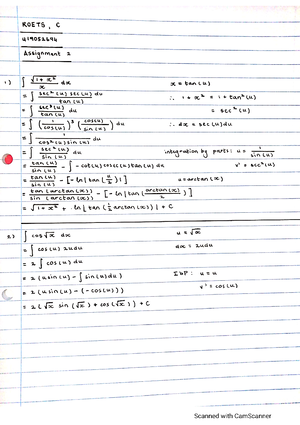 ROETS, C
U19052694
Assignment 2
1) ∫ √(1+x²)/x dx    x = tan(u)
= ∫ sec²(u) sec(u) du / tan(u)    ∴ 1 + x² = 1 + tan²(u)
= ∫ sec³(u)/tan(u) du    = sec²(u)
= ∫ (1/cos(u))³ (cos(u)/sin(u)) du    ∴ dx = sec(u)du
= ∫ du/(cos²(u) sin(u))
= ∫ sec²(u)/sin(u) du    integration by parts: u = 1/sin(u)
= tan(u)/sin(u) - ∫ - cot(u)cosec(u)tan(u) du    v' = sec²(u)
= tan(u)/sin(u) - [-ln|tan(u/2)|]    u = arctan(x)
= tan(arctan(x))/sin(arctan(x)) - [-ln|tan(arctan(x)/2)]
= √(1+x²) + ln|tan(½ arctan(x))| + C
2) ∫ cos√x dx    u = √x
= ∫ cos(u) 2udu    dx = 2udu
= 2 ∫ cos(u) du
= 2(u sin u - ∫ sin(u) du)    IBP: u = u
= 2(u sin u - (-cos(u)))    v' = cos(u)
= 2(√x sin(√x) + cos(√x)) + C
Scanned with CamScanner